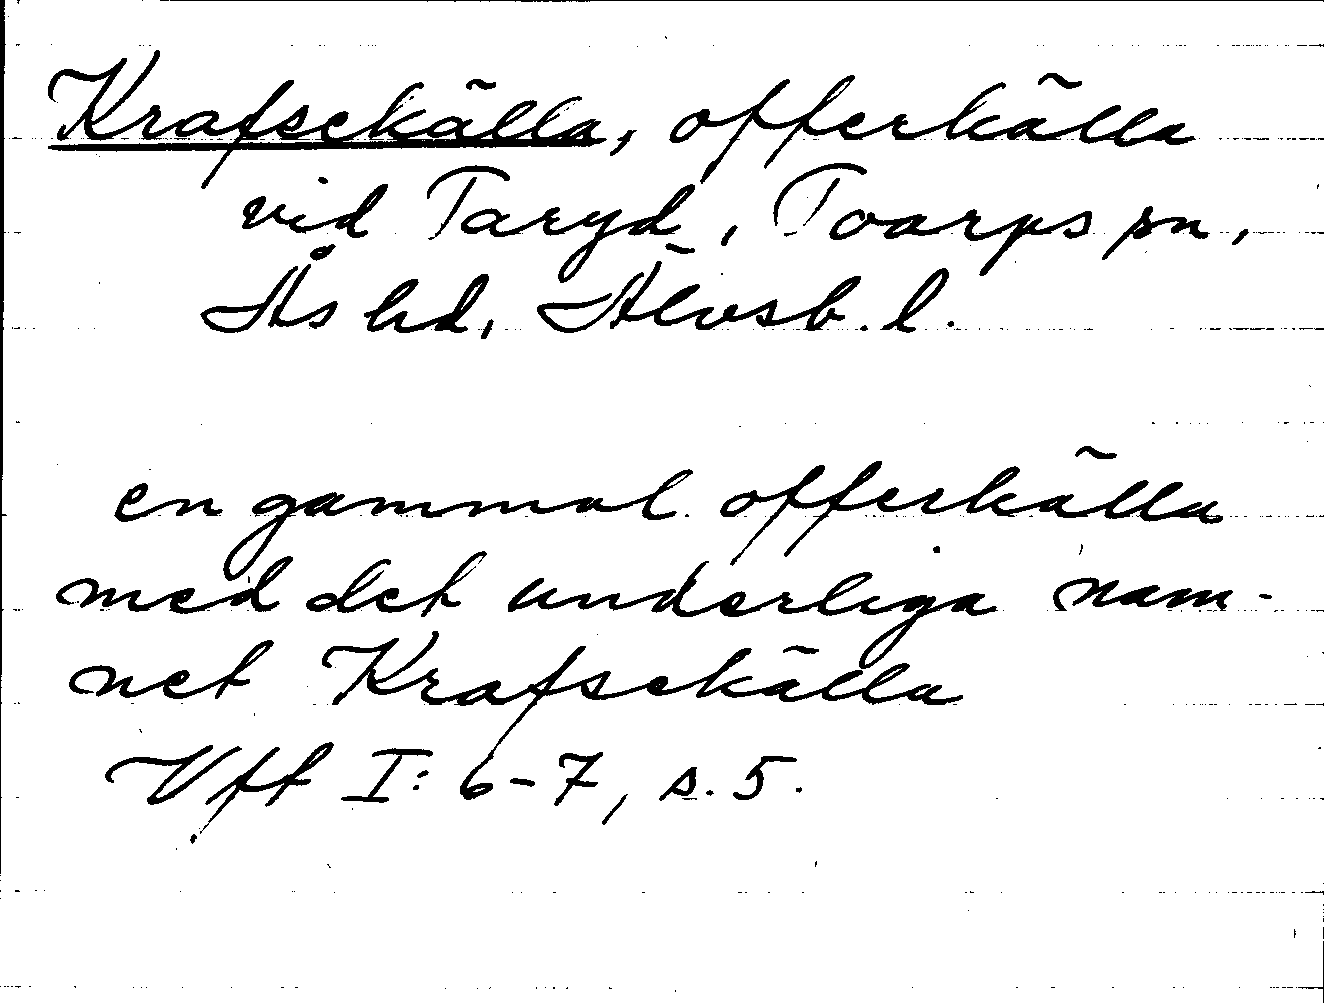 Krafsekälla, offerkälla
vid Taryd, Toarps sn,
Ås hd, Älvsb. l.
en gammal offerkälla
med det underliga nam-
net Krafsekälla
Vft I: 6-7, s. 5.